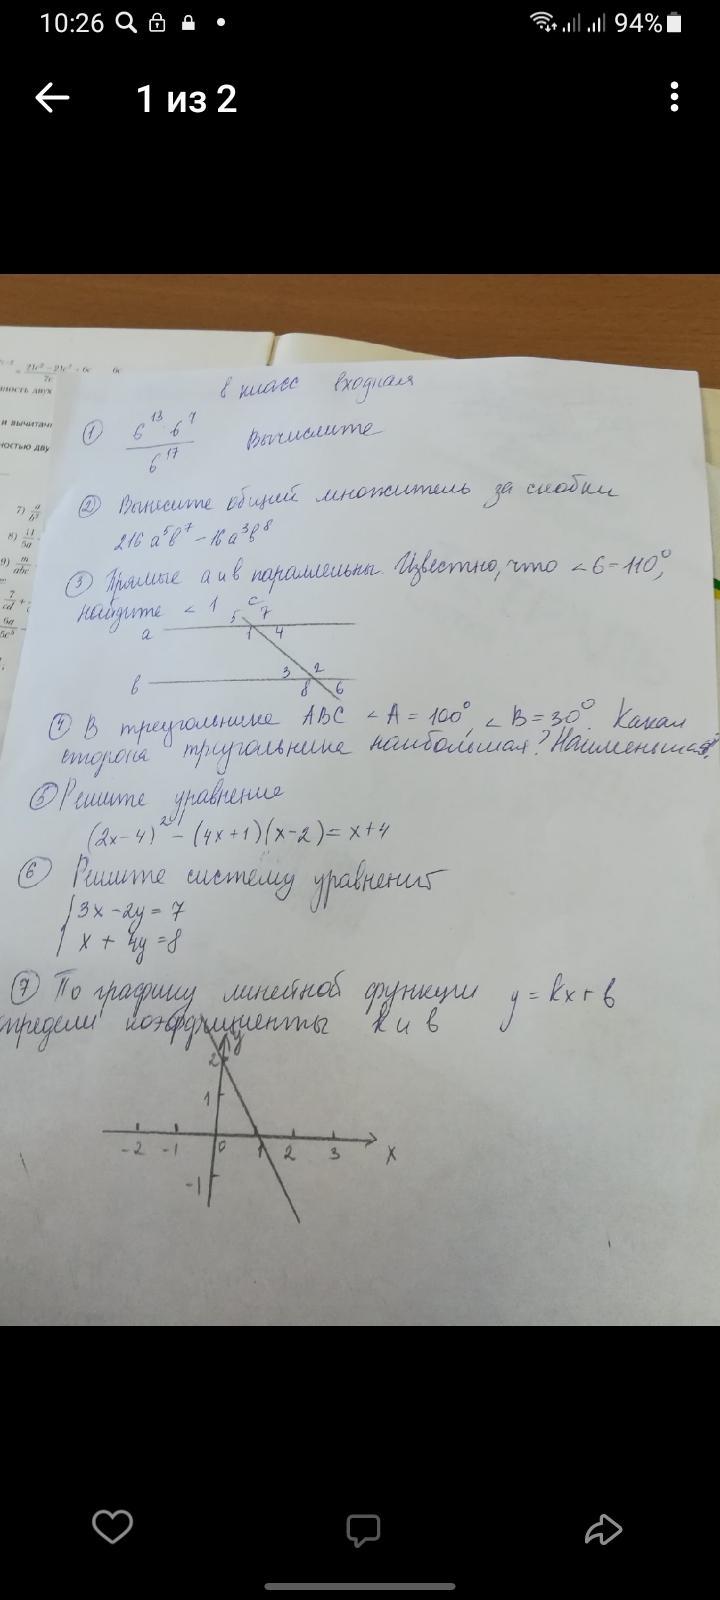 10:26 94%
1 из 2
8 класс входная
① 6¹³ · 6⁷ / 6¹⁷ Вычислите
② Вынесите общий множитель за скобки
216 a⁵b⁷ - 16a³b⁸
③ Прямые а и в параллельны. Известно, что ∠6=110°,
найдите ∠1
c
5 7
a 1 4
3 2
в 8 6
④ В треугольнике АВС ∠A = 100°, ∠B = 30°. Какая
сторона треугольника наибольшая? Наименьшая?
⑤ Решите уравнение
(2x-4)² - (4x+1)(x-2) = x+4
⑥ Решите систему уравнений
3x - 2y = 7
x + 4y = 8
⑦ По графику линейной функции y = kx + в
определи коэффициенты k и в
y
2
1
-2 -1 0 1 2 3 x
-1
ность двух
и вычитан
ностью дву
7) a
8) 11
5a
9) m
abc
7
cd
6a